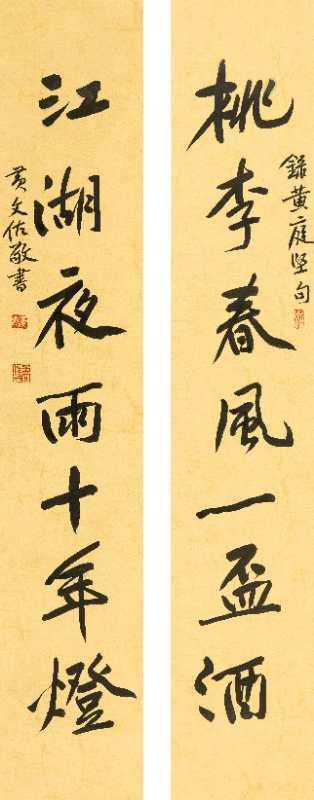 錄黃庭堅句
桃李春風一盃酒
江湖夜雨十年燈
黃文佑敬書